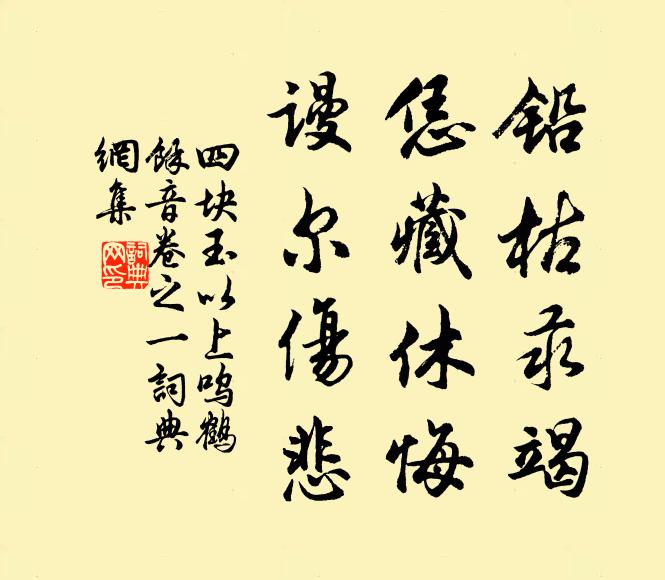 铅枯汞竭
恁藏休悔
谩尔傷悲
四块玉以上鸣鹤
餘音卷之一詞典
網集
詞典
网印